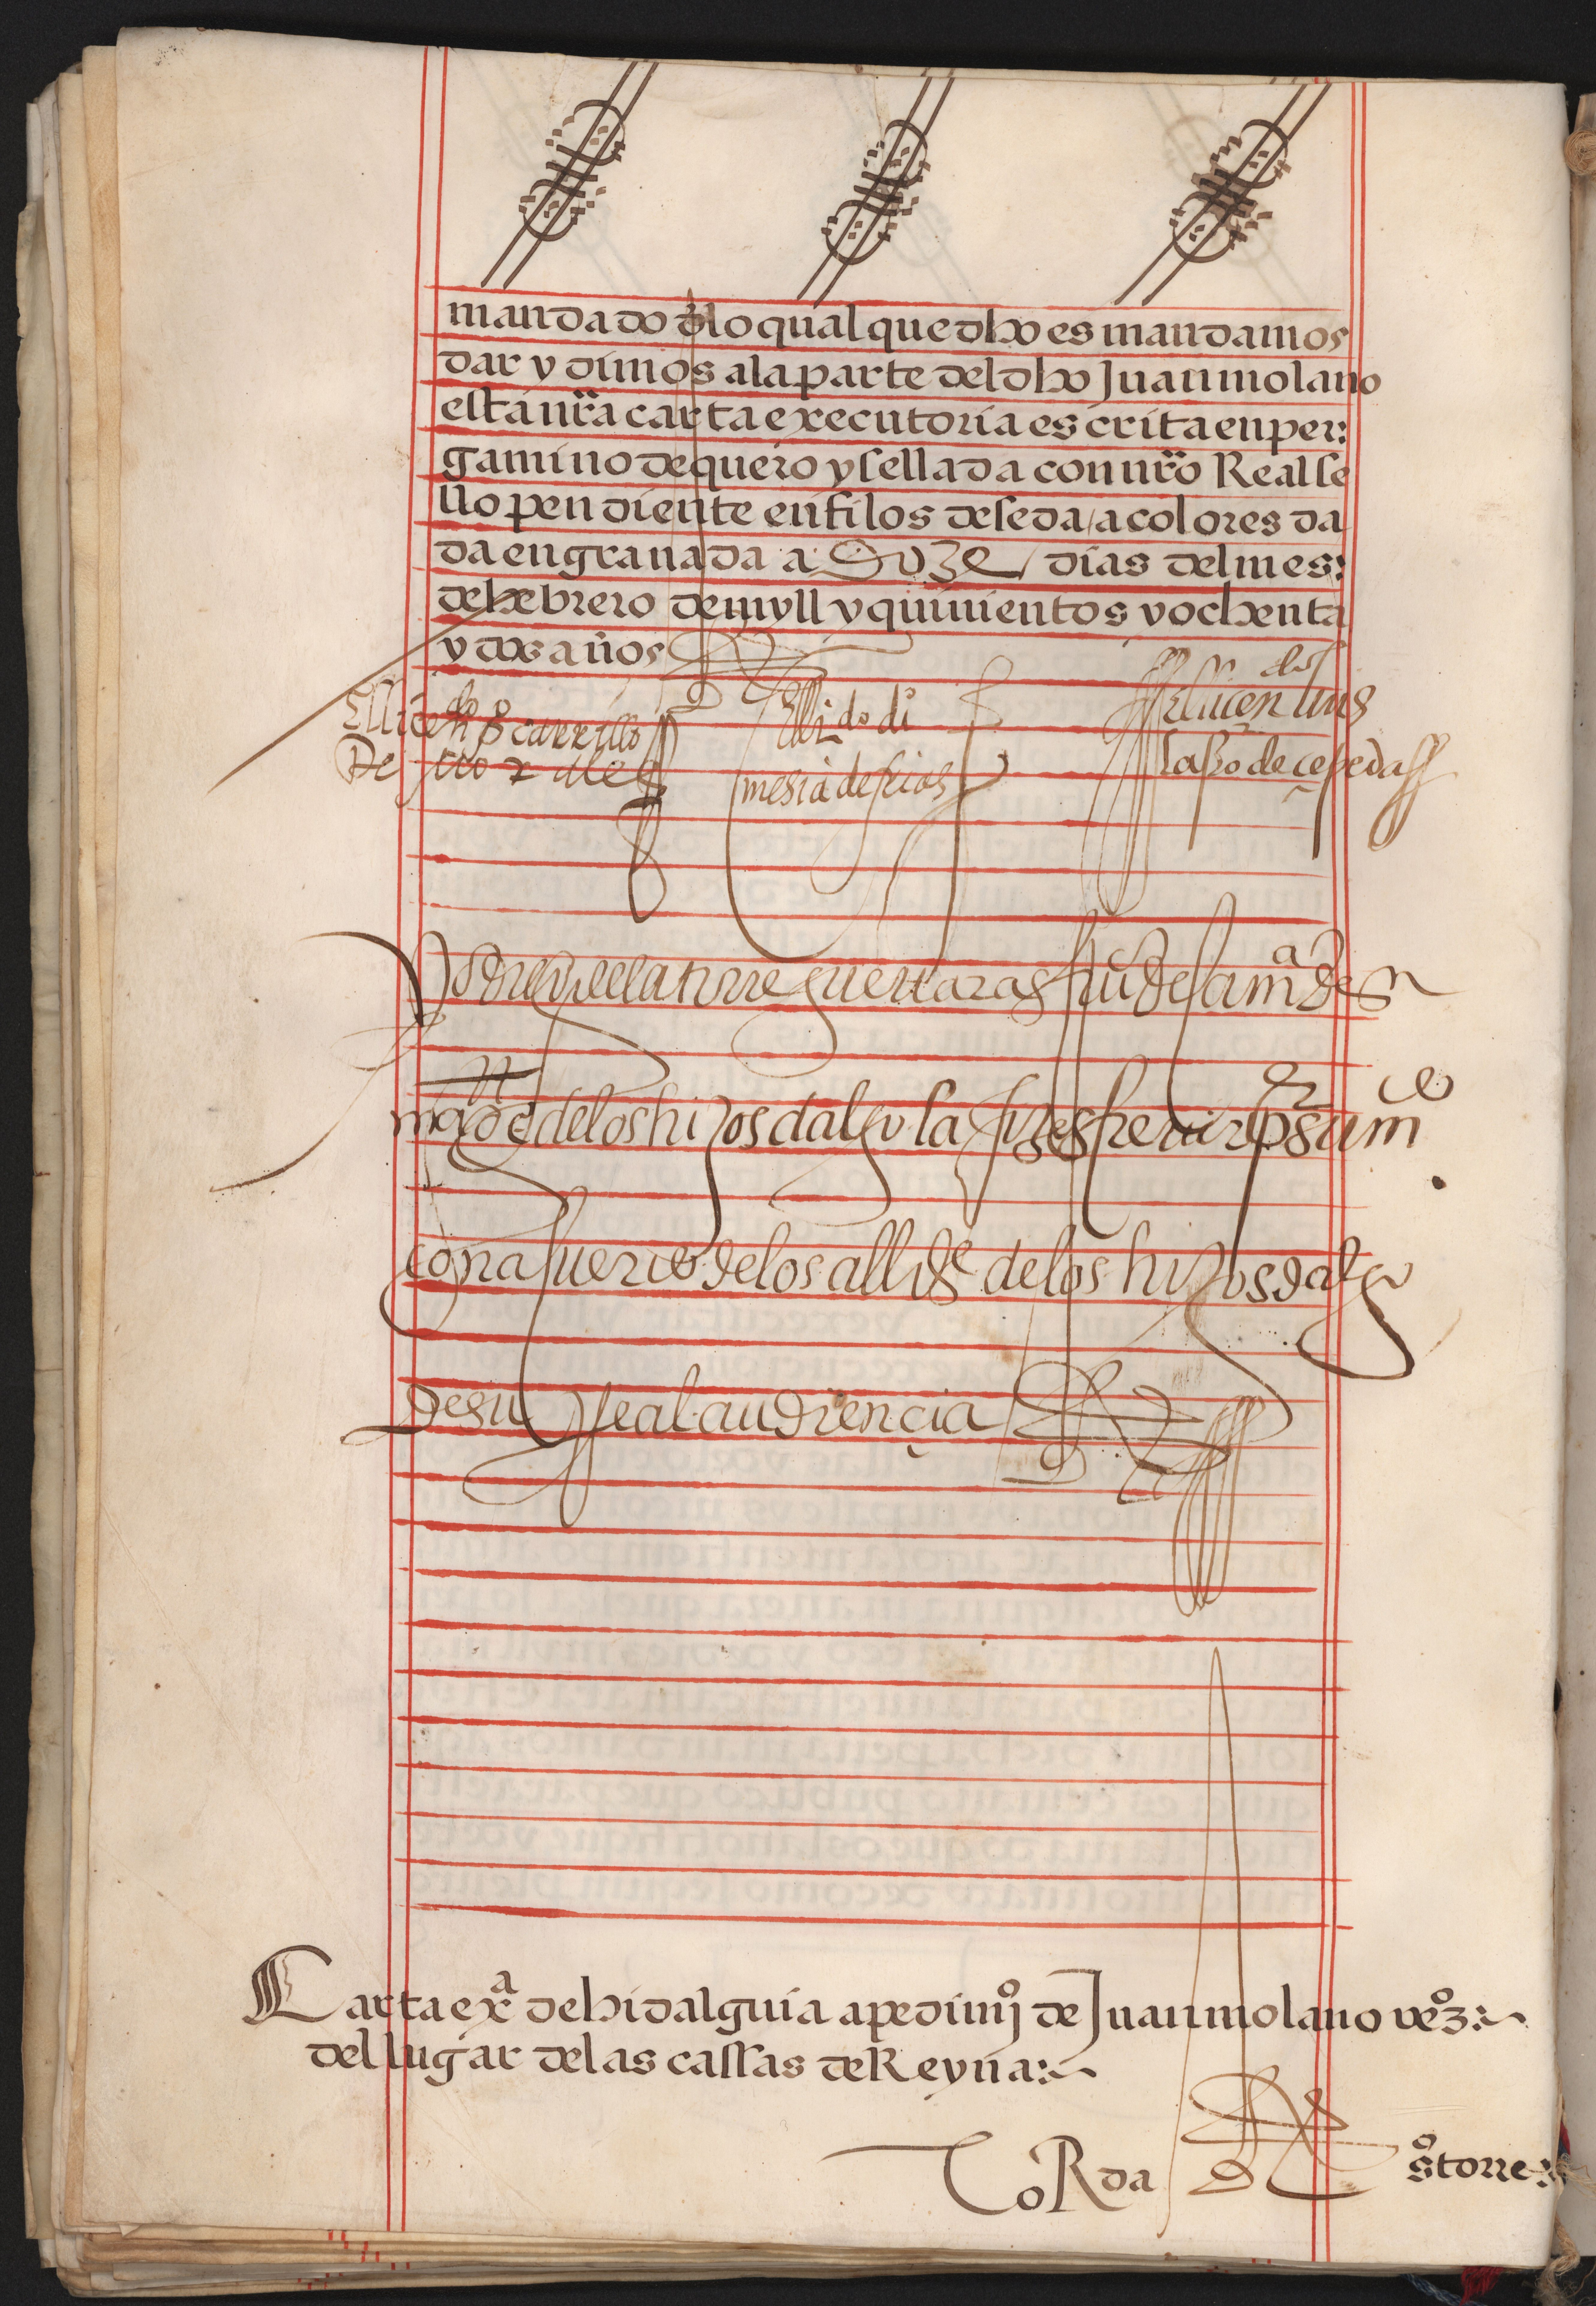 mandado dlo qual que dho es mandamos
dar y dimos ala parte del dho Juan molano
esta nr̃a carta executoria escrita en per:
gamino de quero y sellada con nr̃o Real se
llo pendiente en filos de seda a colores da
da en granada a doze dias del mes:
de hebrero de myll y quinientos y ochenta
y dos años
El licen do carrillo
El licdo di
El licen dos luis
De
mesia de frias
laso de cepeda
Yo guevara de sa mad
de los hijos dalgo la fize screuir por su mdo
con acuerdo de los alldes de los hijos dalgo
de su Real audiençia
Carta exa de hidalguia a pedimio de Juan molano vezo:
del lugar de las cassas de Reyna:
CoRda
so torre